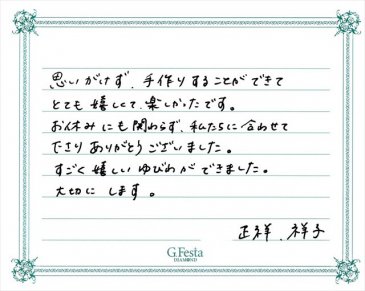 思いがけず、手作りすることができて
とても嬉しくて、楽しかったです。
お休みにも関わらず、私たちに合わせて
下さりありがとうございました。
すごく嬉しいゆびわができました。
大切にします。
正祥、祥子
G.Festa
DIAMOND